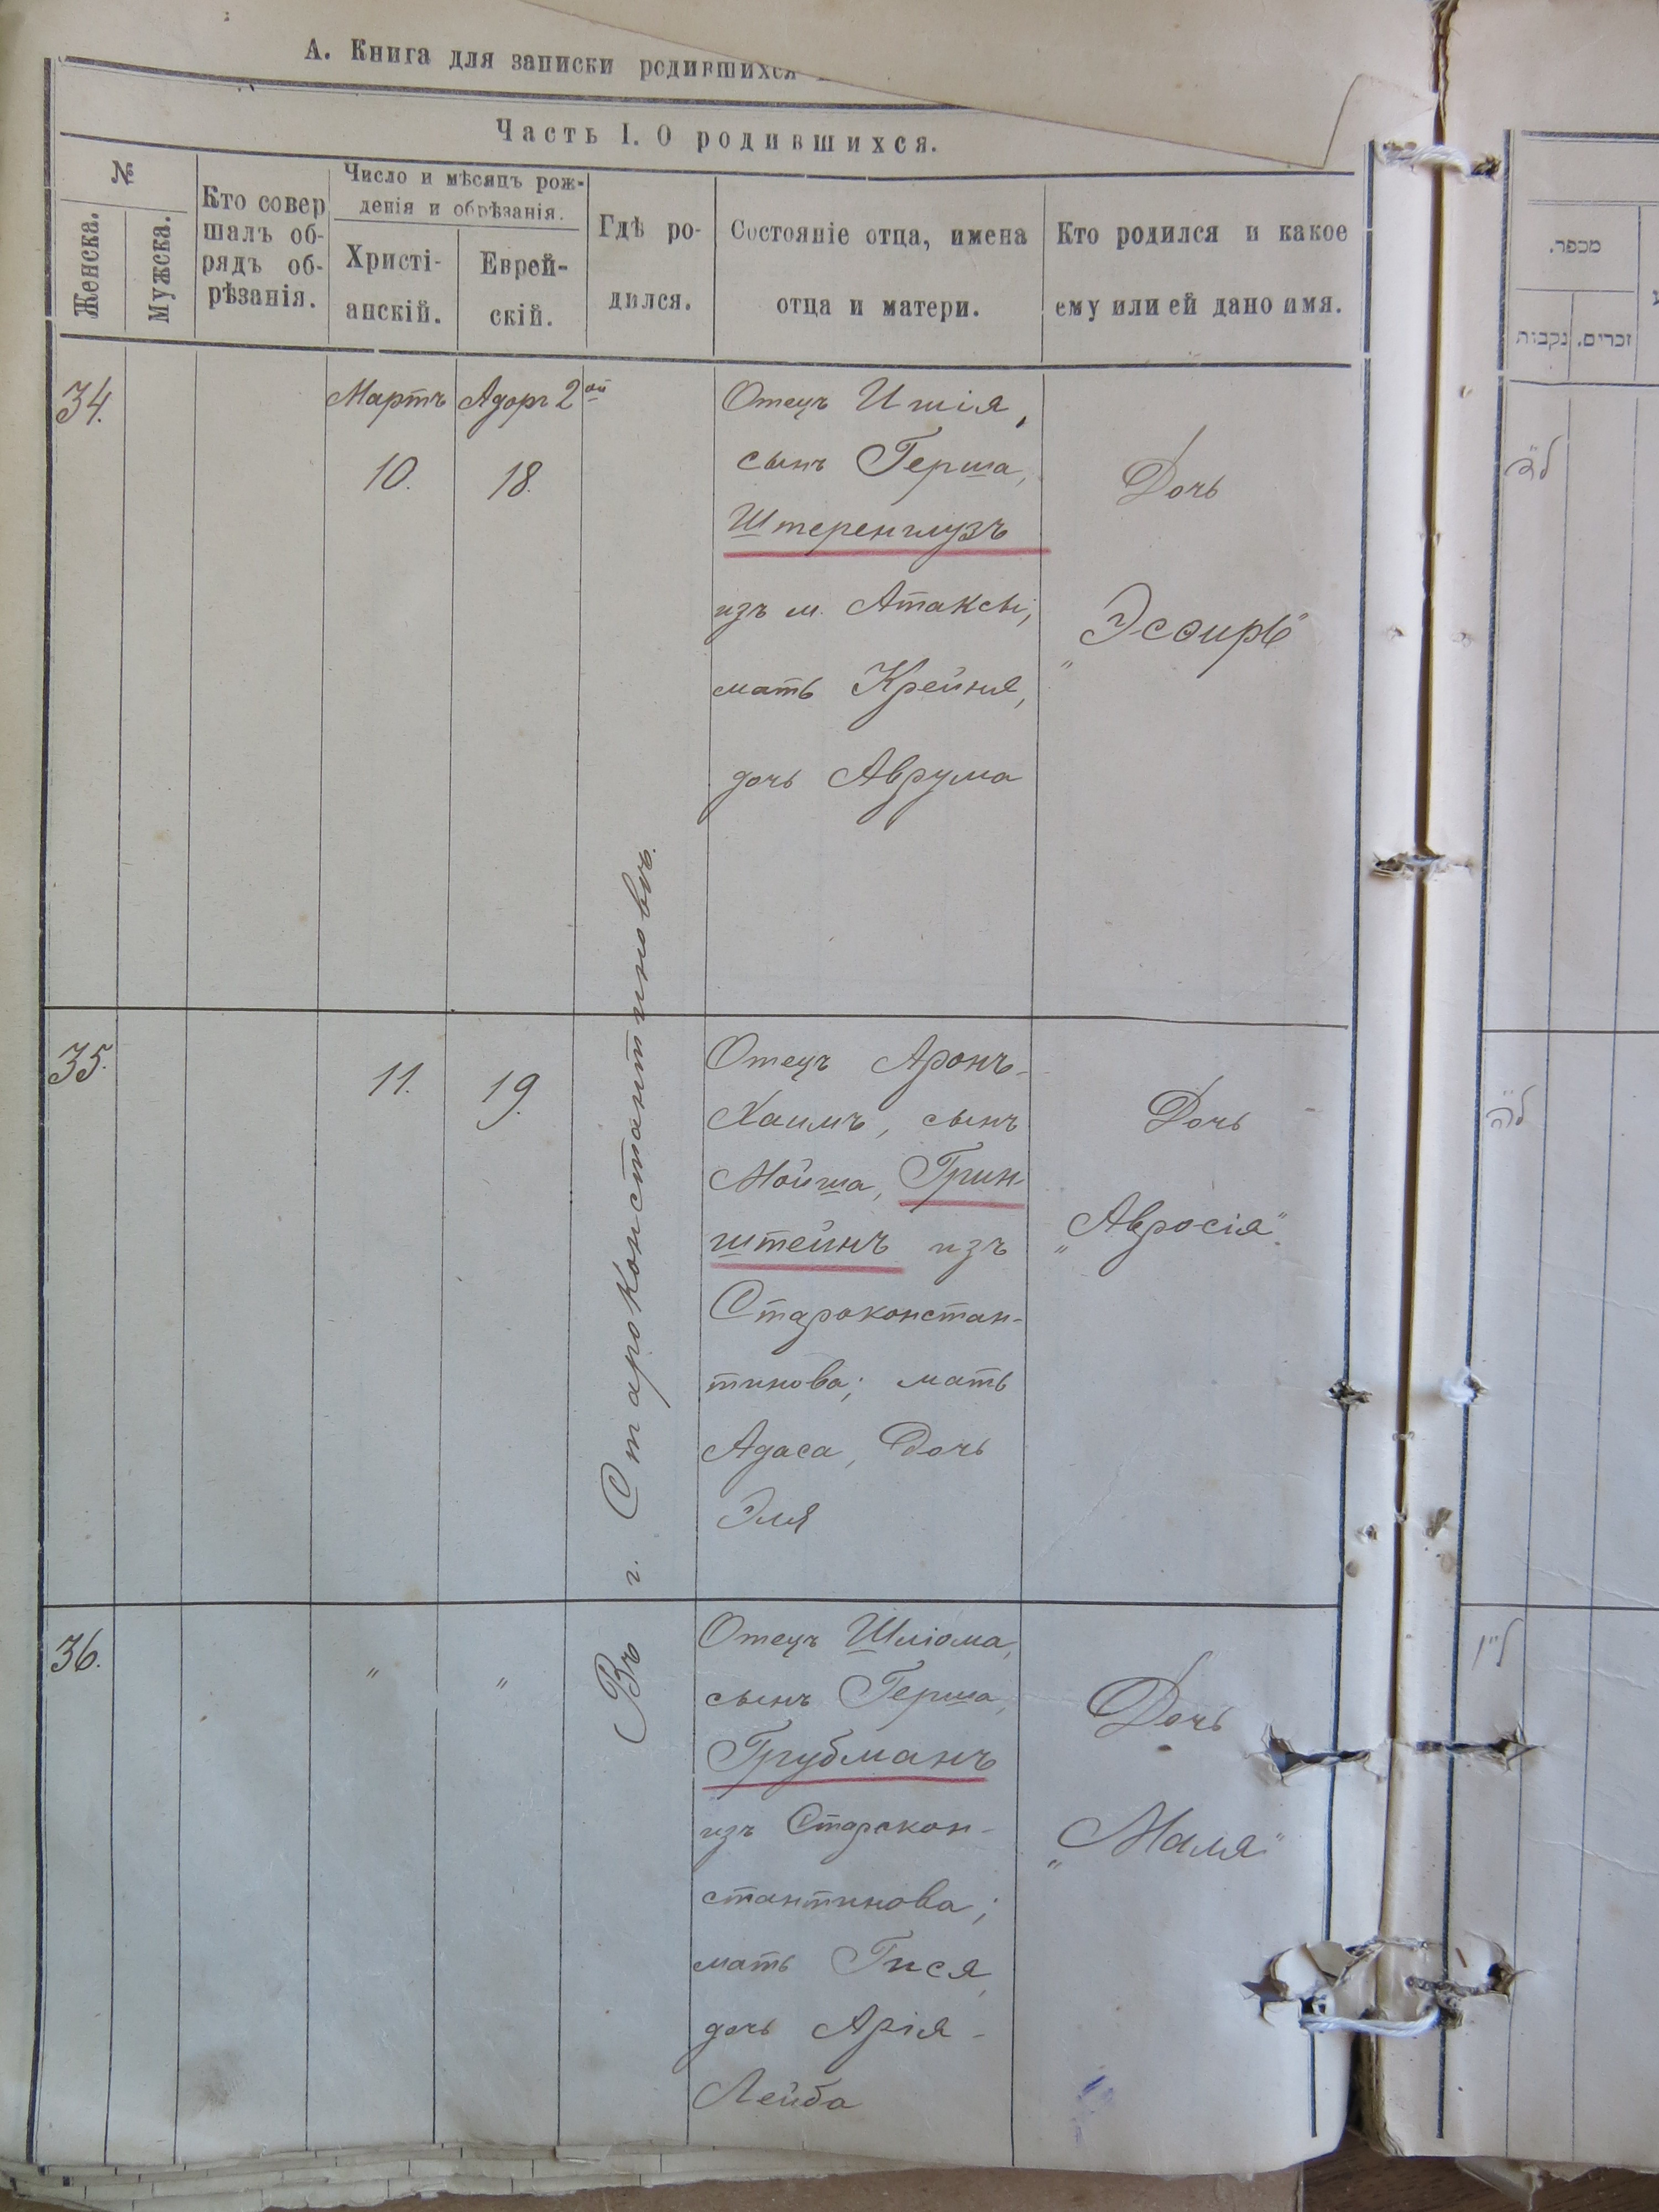 А. Книга для записки родившихся
Часть I. О родившихся.
№
Женска.
Мужска.
Кто совер
шалъ об-
рядъ об-
рѣзанія.
Число и мѣсяцъ рож-
денія и обрѣзанія.
Христі-
анскій.
Еврей-
скій.
Гдѣ ро-
дился.
Состояніе отца, имена
отца и матери.
Кто родился и какое
ему или ей дано имя.
מכפר.
נקבות
זכרים.
34.
Мартъ
10.
Адоръ 2ой
18.
Въ г. Староконстантиновъ.
Отецъ Ишія,
сынъ Герша,
Штеренглузъ
изъ м. Атаксы;
мать Крейня,
дочь Аврума
Дочь
„Эсѳирь"
ל״ד
35.
11.
19.
Отецъ Аронъ-
Хаимъ, сынъ
Мойша, Грин-
штейнъ изъ
Староконстан-
тинова; мать
Адаса, Дочь
Эля
Дочь
„Авросія".
ל״ה
36.
"
"
Отецъ Шліома,
сынъ Герша,
Грубманъ
изъ Старокон-
стантинова;
мать Гися,
дочь Арія-
Лейба
Дочь
„Маля"
ל״ו